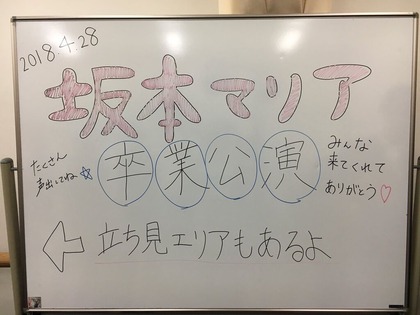 2018 4.28
坂本マリア
たくさん
声出してね☆
卒業公演
みんな
来てくれて
ありがとう♡
← 立ち見エリアもあるよ